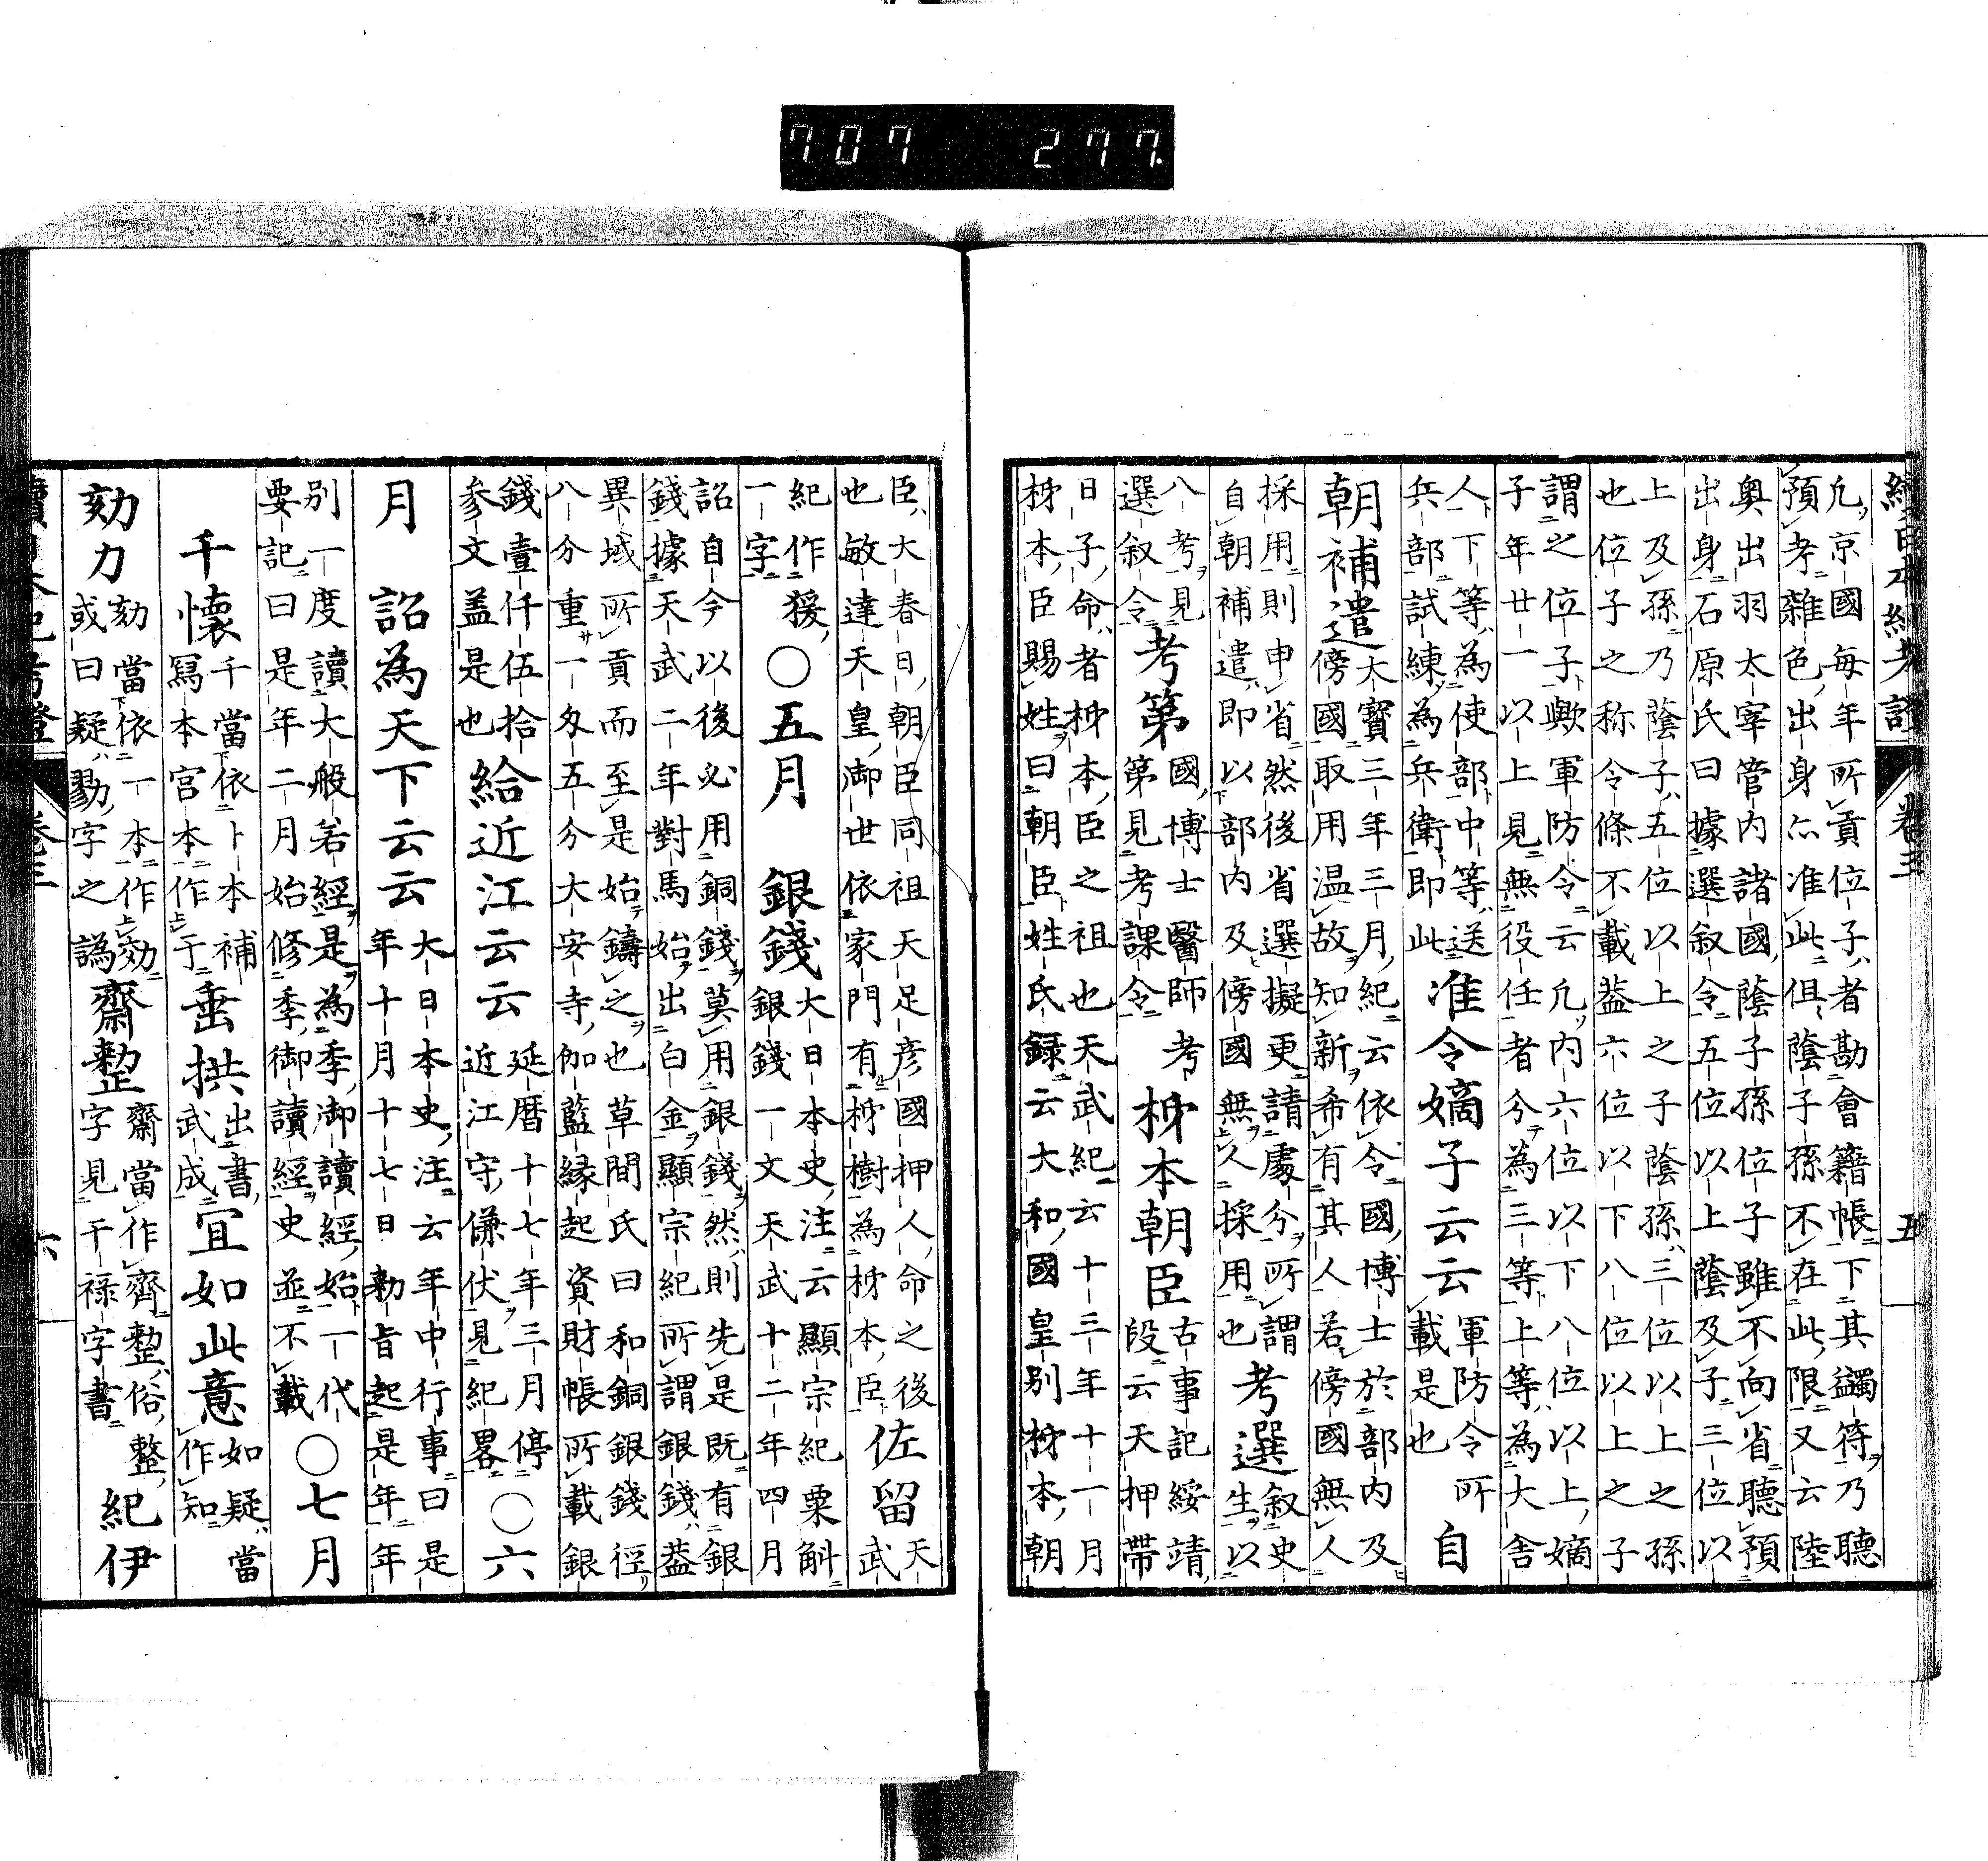 續日本紀考證 卷三 五
凡京國每年所貢位子者勘會籍帳下其蠲符乃聽
預考雜色出身亦准此但蔭子孫不在此限又云陸
奥出羽太宰管内諸國蔭子孫位子雖不向省聽預
出身石原氏曰據選叙令五位以上蔭及子三位以
上及孫乃蔭子五位以上之子蔭孫三位以上之孫
也位子之称令條不載葢六位以下八位以上之子
謂之位子歟軍防令云凡内六位以下八位以上嫡
子年廿一以上見無役任者分為三等上等為大舍
人下等為使部中等送
兵部試練為兵衛即此
准令嫡子云云
軍防令所
載是也
自
朝補遣
大寶三年三月紀云依令國博士於部内及
傍國取用温故知新希有其人若傍國無人
採用則申省然後省選擬更請處分所謂
自朝補遣即以部内及傍國無人採用也
考選
叙史
生以
八考見
選叙令
考第
國博士醫師考
第見考課令
枾本朝臣
古事記綏靖
段云天押帶
日子命者枾本臣之祖也天武紀云十三年十一月
枾本臣賜姓曰朝臣姓氏録云大和國皇别枾本朝
臣大春日朝臣同祖天足彦國押人命之後
也敏達天皇御世依家門有枾樹為枾本臣
佐留
天
武
紀作猨
一字
〇五月 銀錢
大日本史注云顯宗紀粟斛
銀錢一文天武十二年四月
詔自今以後必用銅錢莫用銀錢然則先是既有銀
錢據天武二年對馬始出白金顯宗紀所謂銀錢葢
異域所貢而至是始鑄之也草間氏曰和銅銀錢徑
八分重一匁五分大安寺伽藍縁起資財帳所載銀
錢壹仟伍拾
參文盖是也
給近江云云
延暦十七年三月停
近江守傔伏見紀畧
〇六
月 詔為天下云云
大日本史注云年中行事曰是
年十月十七日勅旨起是年年
别一度讀大般若經是為季御讀經始一代
要記曰是年二月始修季御讀經史並不載
〇七月
千懷
千當依卜本補
冩本宮本作于
垂拱
出書
武成
宜如此意
如疑當
作知
劾力
劾當依一本作効
或曰疑勠字之譌
齋整
齋當作齊整俗整
字見干祿字書
紀伊
續日本紀考證 卷三 六